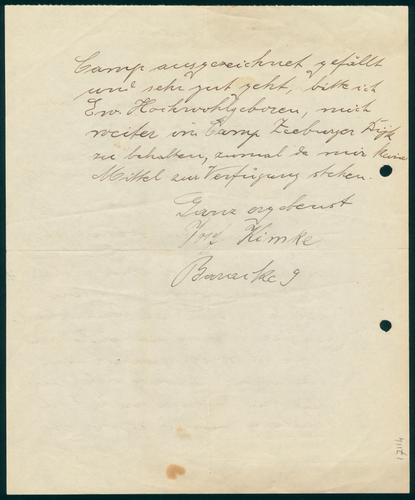 Camp ausgezeichnet gefällt
und sehr gut geht, bitte ich
Ew. Hochwohlgeboren, mich
weiter im Camp Zeeburger Dijk
zu behalten, zumal da mir keine
Mittel zur Verfügung stehen.
Ganz ergebenst
Kimke
Baracke 9
17114